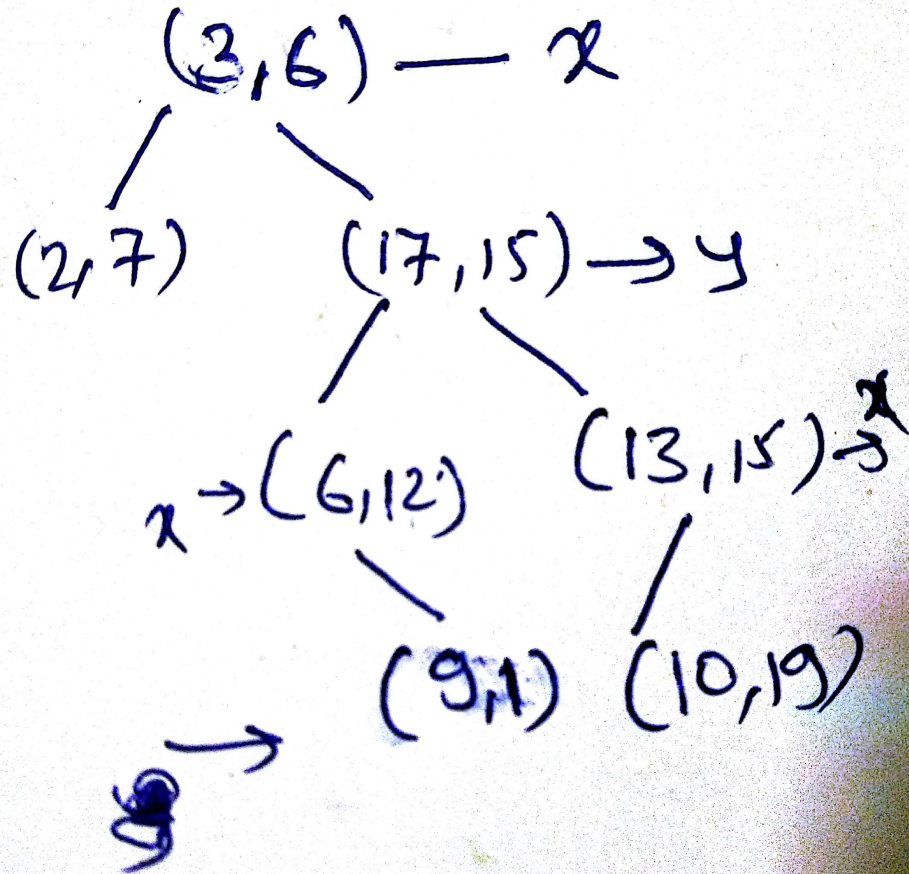 (3,6) — x
(2,7) (17,15) → y
x → (6,12) (13,15) → x
(9,1) (10,19)
y →